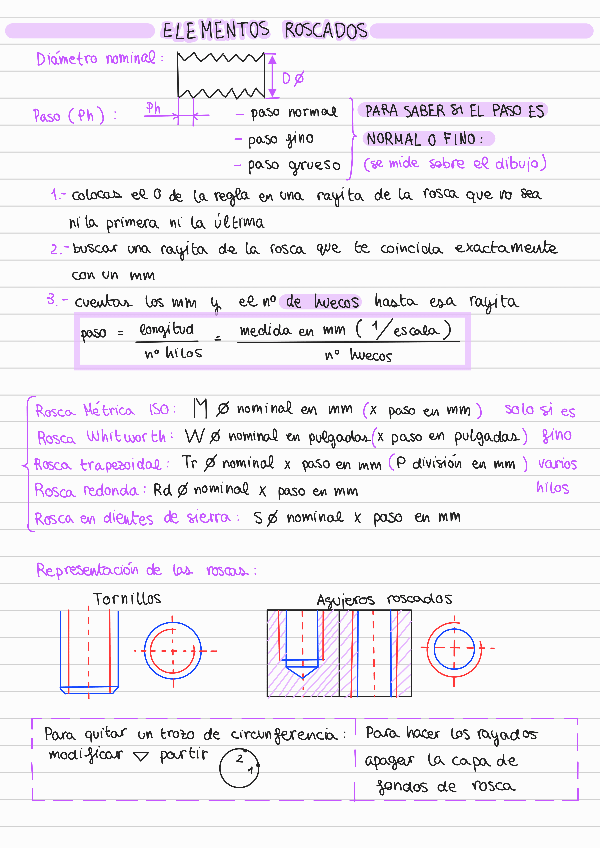 ELEMENTOS ROSCADOS
Diámetro nominal:
D Ø
Paso (Ph) :
Ph
- paso normal
- paso fino
- paso grueso
PARA SABER SI EL PASO ES
NORMAL O FINO:
(se mide sobre el dibujo)
1.- colocas el 0 de la regla en una rayita de la rosca que no sea
ni la primera ni la última
2.- buscar una rayita de la rosca que te coincida exactamente
con un mm
3.- cuentas los mm y el nº de huecos hasta esa rayita
paso = longitud / nº hilos = medida en mm (1/escala) / nº huecos
Rosca Métrica ISO: M Ø nominal en mm (x paso en mm) solo si es
Rosca Whitworth: W Ø nominal en pulgadas (x paso en pulgadas) fino
Rosca trapezoidal: Tr Ø nominal x paso en mm (P división en mm) varios
Rosca redonda: Rd Ø nominal x paso en mm hilos
Rosca en dientes de sierra: S Ø nominal x paso en mm
Representación de las roscas:
Tornillos
Agujeros roscados
Para quitar un trozo de circunferencia:
modificar ▽ partir
2
1
Para hacer los rayados
apagar la capa de
fondos de rosca